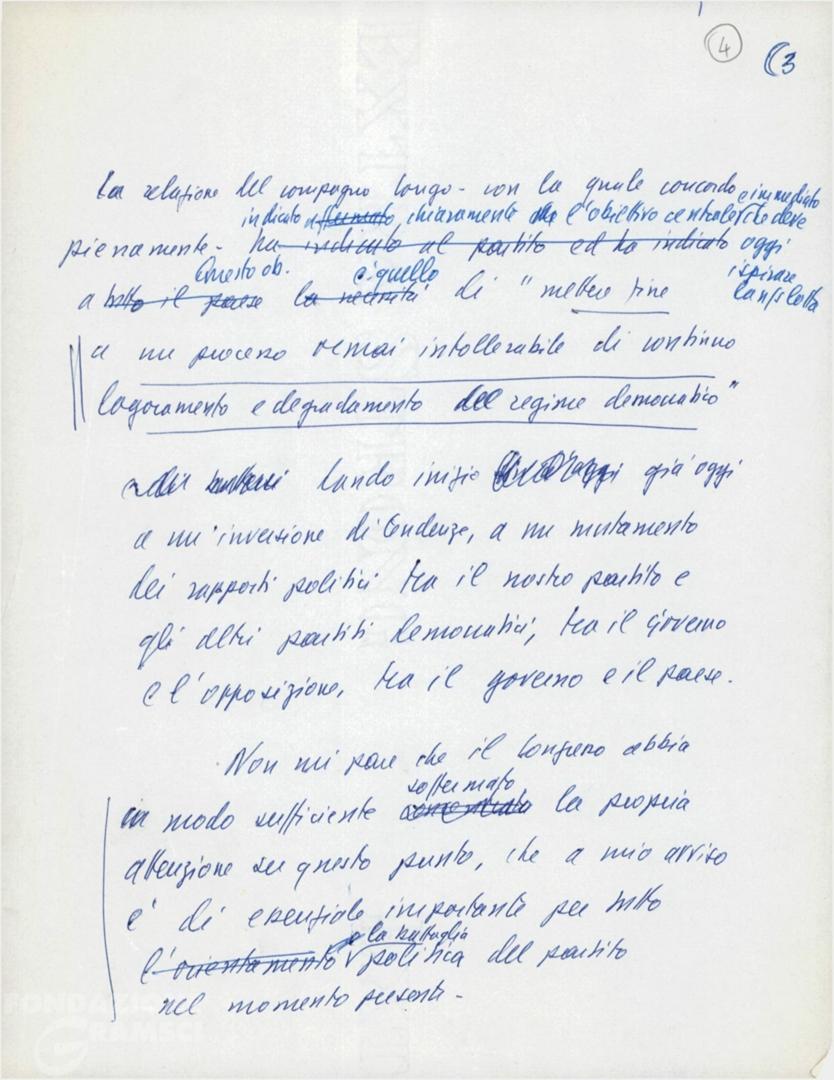 4
3
La relazione del compagno Longo - con la quale concordo e immediato
indicato affermato chiaramente che l'obiettivo centrale che deve
pienamente - ha indicato al partito ed ha indicato oggi
Questo ob. è quello ispirare
a tutto il paese la necessità di "mettere fine la ns lotta
a un processo ormai intollerabile di continuo
logoramento e degradamento del regime democratico"
dando inizio già oggi
a un'inversione di tendenze, a un mutamento
dei rapporti politici tra il nostro partito e
gli altri partiti democratici, tra il governo
e l'opposizione, tra il governo e il paese.
Non mi pare che il Congresso abbia
soffermato
in modo sufficiente concentrato la propria
attenzione su questo punto, che a mio avviso
è di essenziale importante per tutto
e la battaglia
l'orientamento politica del partito
nel momento presente -
FONDAZIONE
GRAMSCI